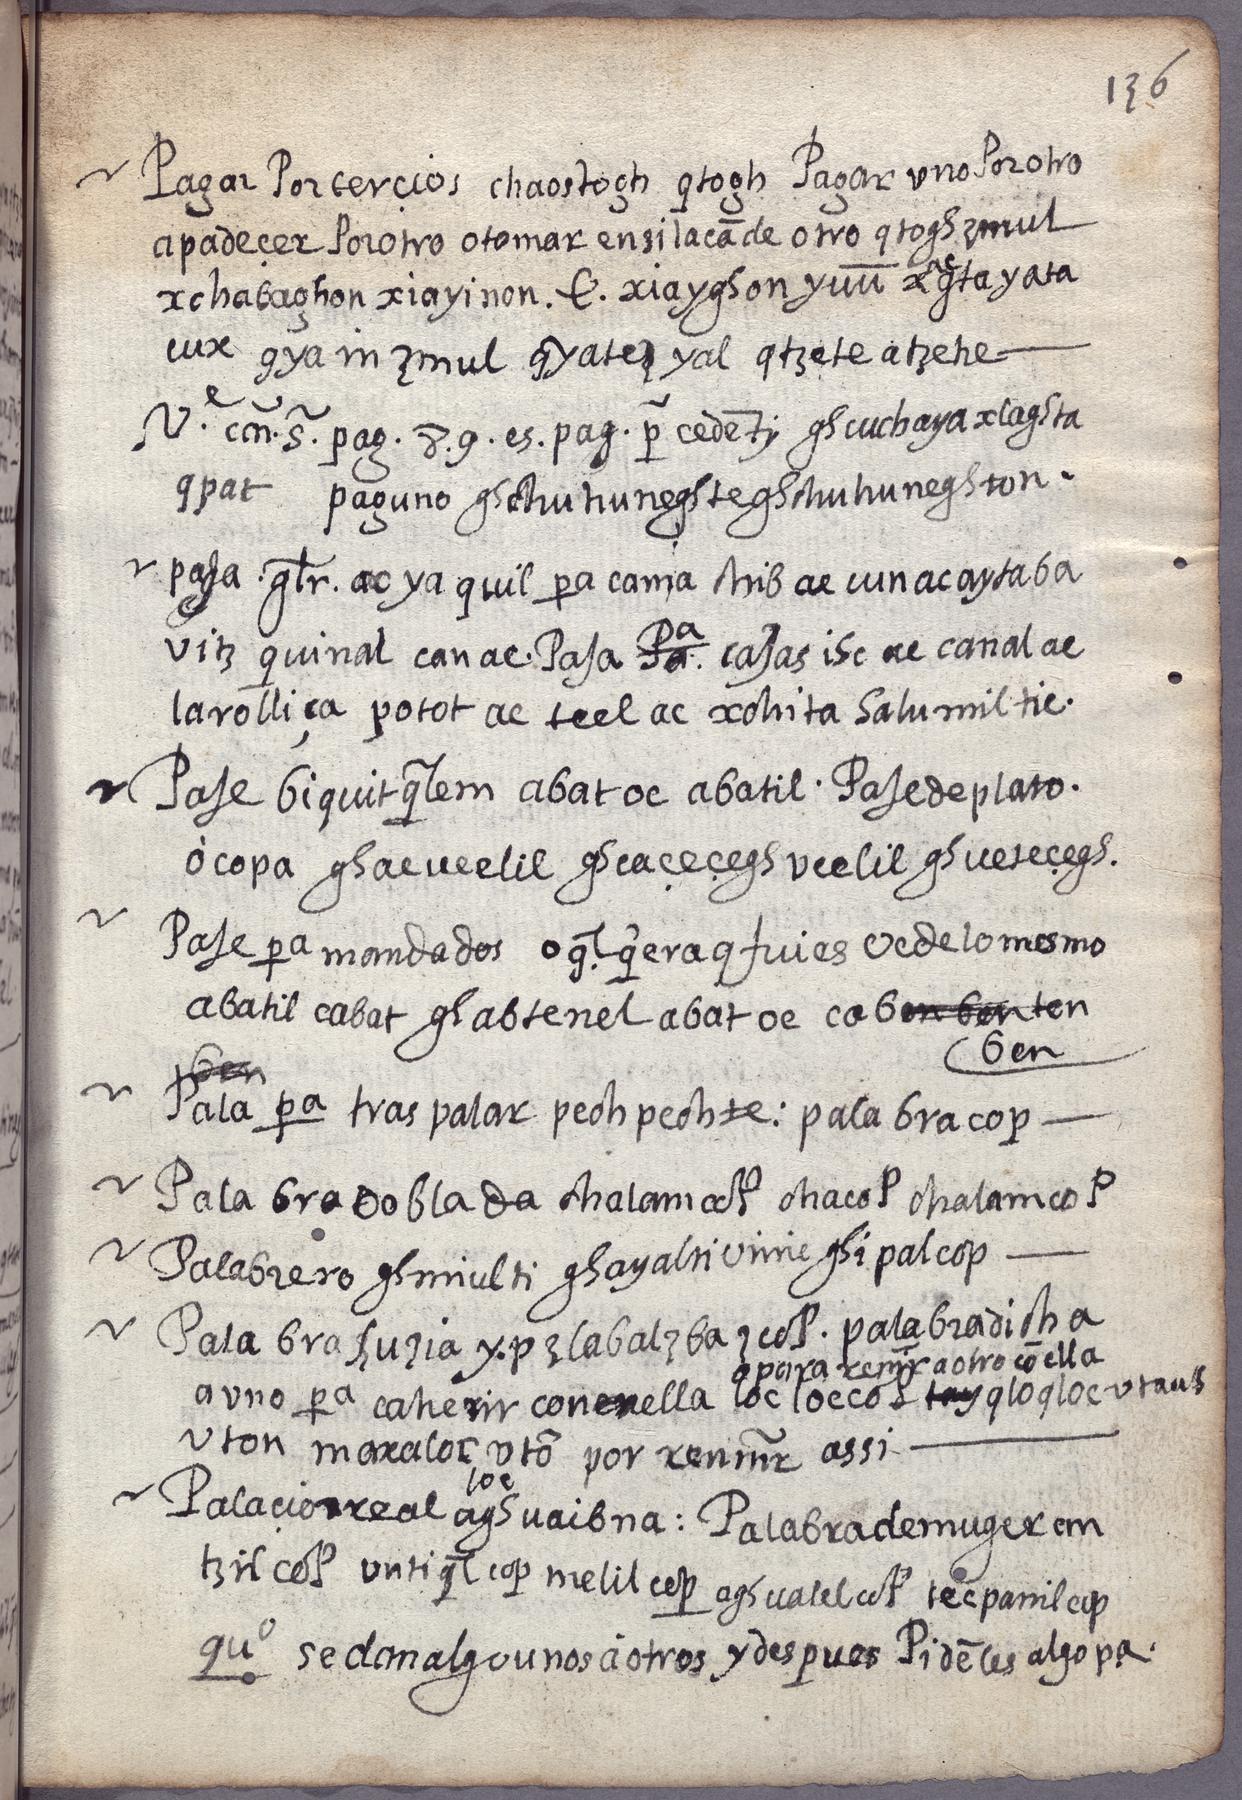 136
Pagar Por terçios chaostogh qtogh Pagar vno Porotro
apadeçer Porotro otomar ensilacāde otro qtoghzmul
xchabaghon xiayinon. E. xiayghon yuū x gtayata
cux qya in zmul qyatez yal qtzete atzehe
V.e cm̄.s̃. pag. 8.9. es. pag. p̃ cedēty ghcuchaya xlaghta
qpat paguno ghchuhuneghteghchuhuneghton.
paja .q̄lr. ac ya quil pa cama chib ae cunacaytaba
vitz quinal canac. Paja Pa. casas isc ae canal ae
larolliça potot ae teel ac xohita Salumiltic.
Paje biquitq̄lem abatoc abatil. Paje de plato.
ócopa ghaeueelil ghcaçeçegh veelil ghueteçegh.
Paje pa mandados o q̄l. q̄era q fuies vedelomesmo
abatil cabat ghabtenel abatoc caben ben ten
ben
ben
Pala pa traspalar pechpechte: palabra cop
Palabra doblada chalam cop chacop chalamcop
Palabrero ghmiulti ghayalti vinic ghipalcop
Palabra suzia y.p zlabalzba zcop. palabra dicha
o para reñir a otro cō ella
a vno pa caherir conenella loc loccop tay qloqloc vtaub
vton maxaloc vtō por reñir assi
loc
Palacio real aghuaibna: Palabra de muger an
tzil cop vntiq̄l cop melil cop aghualel cop tecpanil cop
quo se dan algo unos a otros y despues Pidēles algo pa.